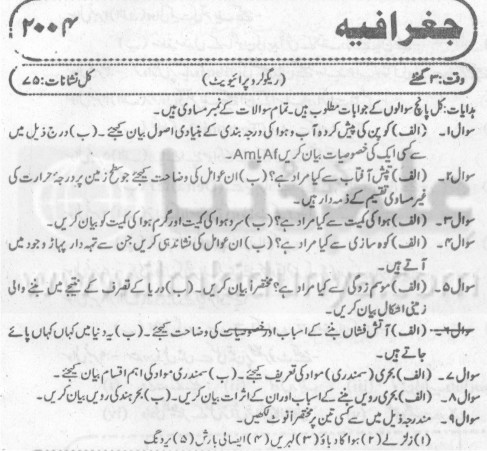 جغرافیہ
۲۰۰۴
وقت: ۳ گھنٹے (ریگولر و پرائیویٹ) کل نشانات: ۷۵
ہدایات: کل پانچ سوالوں کے جوابات مطلوب ہیں۔ تمام سوالات کے نمبر مساوی ہیں۔
سوال۱۔ (الف) کوپن کی پیش کردہ آب و ہوا کی درجہ بندی کے بنیادی اصول بیان کیجئے۔ (ب) درج ذیل میں
سے کسی ایک کی خصوصیات بیان کریں Af یا Am۔
سوال۲۔ (الف) تپش آفتاب سے کیا مراد ہے؟ (ب) ان عوامل کی وضاحت کیجئے جو سطح زمین پر درجہ حرارت کی
غیر مساوی تقسیم کے ذمہ دار ہیں۔
سوال۳۔ (الف) ہوا کی کمیت سے کیا مراد ہے؟ (ب) سرد ہوا کی کمیت اور گرم ہوا کی کمیت کو بیان کریں۔
سوال۴۔ (الف) کوہ سازی سے کیا مراد ہے؟ (ب) ان عوامل کی نشاندہی کریں جن سے تہہ دار پہاڑ وجود میں
آتے ہیں۔
سوال۵۔ (الف) موسم زدگی سے کیا مراد ہے؟ مختصراً بیان کریں۔ (ب) دریا کے تصرف کے نتیجے میں بننے والی
زمینی اشکال بیان کریں۔
سوال۶۔ (الف) آتش فشاں بننے کے اسباب اور خصوصیات کی وضاحت کیجئے۔ (ب) یہ دنیا میں کہاں کہاں پائے
جاتے ہیں۔
سوال۷۔ (الف) بحری (سمندری) مواد کی تعریف کیجئے۔ (ب) سمندری مواد کی اہم اقسام بیان کیجئے۔
سوال۸۔ (الف) بحری رویں بننے کے اسباب اور ان کے اثرات بیان کریں۔ (ب) بحر ہند کی رویں بیان کریں۔
سوال۹۔ مندرجہ ذیل میں سے کسی تین پر مختصر نوٹ لکھیں۔
(۱) زلزلے (۲) ہوا کا دباؤ (۳) لہریں (۴) ایصالی بارش (۵) بردنگ